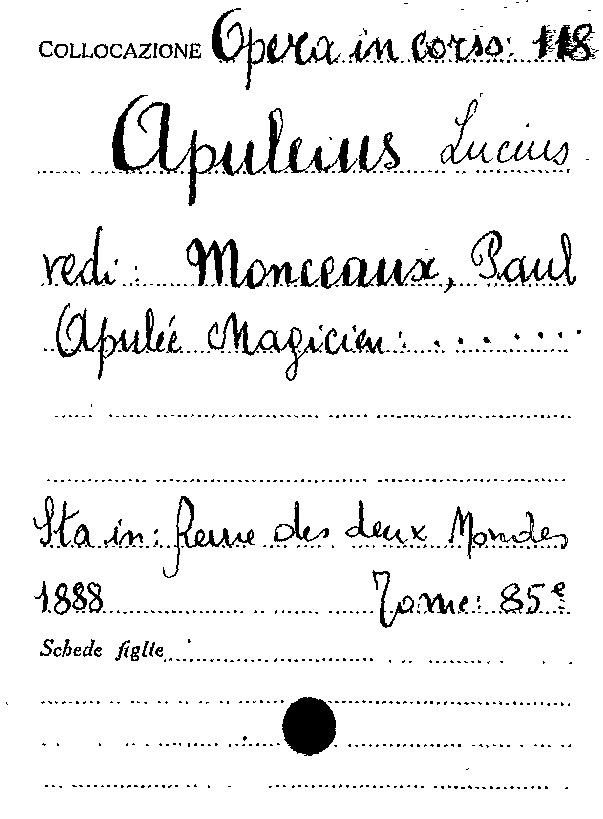 COLLOCAZIONE Opera in corso: 118
Apuleius Lucius
vedi: Monceaux, Paul
Apuléé Magicien: . . . . . . .
Sta in: Revue des deux Mondes
1888 Tome: 85e
Schede figlie